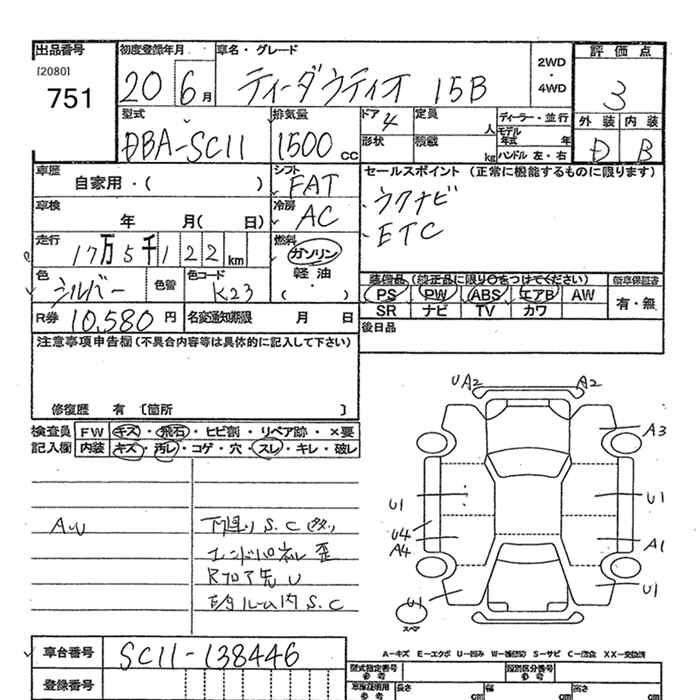 出品番号 初度登録年月 車名・グレード 評価点
[2080]
751
20 6月 ティーダラティオ 15B
2WD
・
4WD
3
型式 排気量 ドア 定員 ディーラー・並行 外装 内装
DBA-SC11 1500cc 4 人 モデル年式 年
形状 積載 kg ハンドル 左・右
D B
車歴 シフト セールスポイント (正常に機能するものに限ります)
自家用・( ) FAT
・ラクナビ
車検 冷房
年 月( 日) AC
・ETC
走行 燃料
17万5千122km ガソリン
軽油・
( )
色 色替 色コード
シルバー K23
装備品 (純正品に限り○をつけてください) 新車保証書
PS PW ABS エアB AW 有・無
SR ナビ TV カワ
R券 10,580円 名変通知期限 月 日
後日品
注意事項申告欄(不具合内容等は具体的に記入して下さい)
修復歴 有 [箇所 ]
検査員 FW キズ・飛石・ヒビ割・リペア跡・×要
記入欄 内装 キズ・汚レ・コゲ・穴・スレ・キレ・破レ
下廻り S.C
エンドパネル 歪
Rフロア先 U
S.C
UA2 A2
A3
U1 U1
U4
A4 A1
U1 U1
スペア
A-キズ E-エクボ U-凹み W-補修跡 S-サビ C-腐食 XX-交換済
車台番号 SC11-138446
登録番号
型式指定番号 類別区分番号
参考 参考
長さ 幅 高さ
cm cm cm